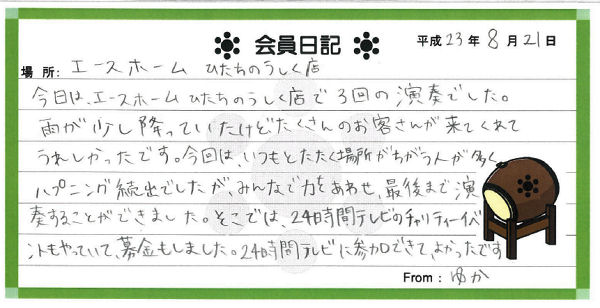 会員日記
平成23年8月21日
場所: エースホーム ひたちのうしく店
今日は、エースホームひたちのうしく店で3回の演奏でした。
雨が少し降っていたけどたくさんのお客さんが来てくれて
うれしかったです。今回は、いつもとたたく場所がちがう人が多く
ハプニング続出でしたが、みんなで力をあわせ、最後まで演
奏することができました。そこでは、24時間テレビのチャリティーイベ
ントもやっていて、募金もしました。24時間テレビに参加できて、よかったです
From: ゆか